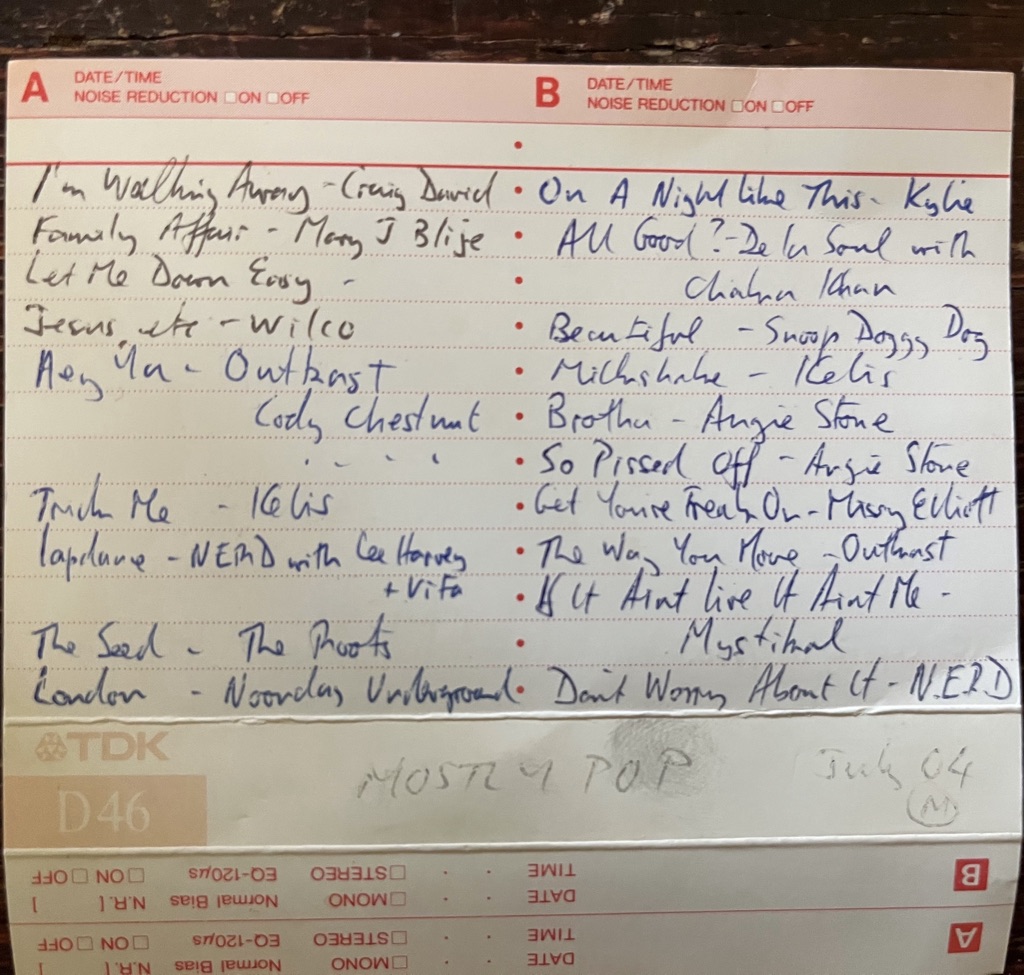 A DATE/TIME
NOISE REDUCTION ON OFF
I'm Walking Away - Craig David
Family Affair - Mary J Blije
Let Me Down Easy -
Jesus, etc - Wilco
Hey Ya - Outkast
Cody Chestnut
Trick Me - Kelis
Lapdance - NERD with Lee Harvey
+ Vita
The Seed - The Roots
London - Noonday Underground
B DATE/TIME
NOISE REDUCTION ON OFF
On A Night Like This - Kylie
All Good? - De La Soul with
Chaka Khan
Beautiful - Snoop Doggy Dog
Milkshake - Kelis
Brotha - Angie Stone
So Pissed Off - Angie Stone
Get You're Freak On - Missy Elliott
The Way You Move - Outkast
If It Aint Live It Aint Me -
Mystikal
Don't Worry About It - N.E.R.D
TDK
D46
MOSTLY POP
July 04
M
B
TIME · · STEREO EQ-120µs ON OFF
DATE · · MONO Normal Bias N.R. [ ]
A
TIME · · STEREO EQ-120µs ON OFF
DATE · · MONO Normal Bias N.R. [ ]